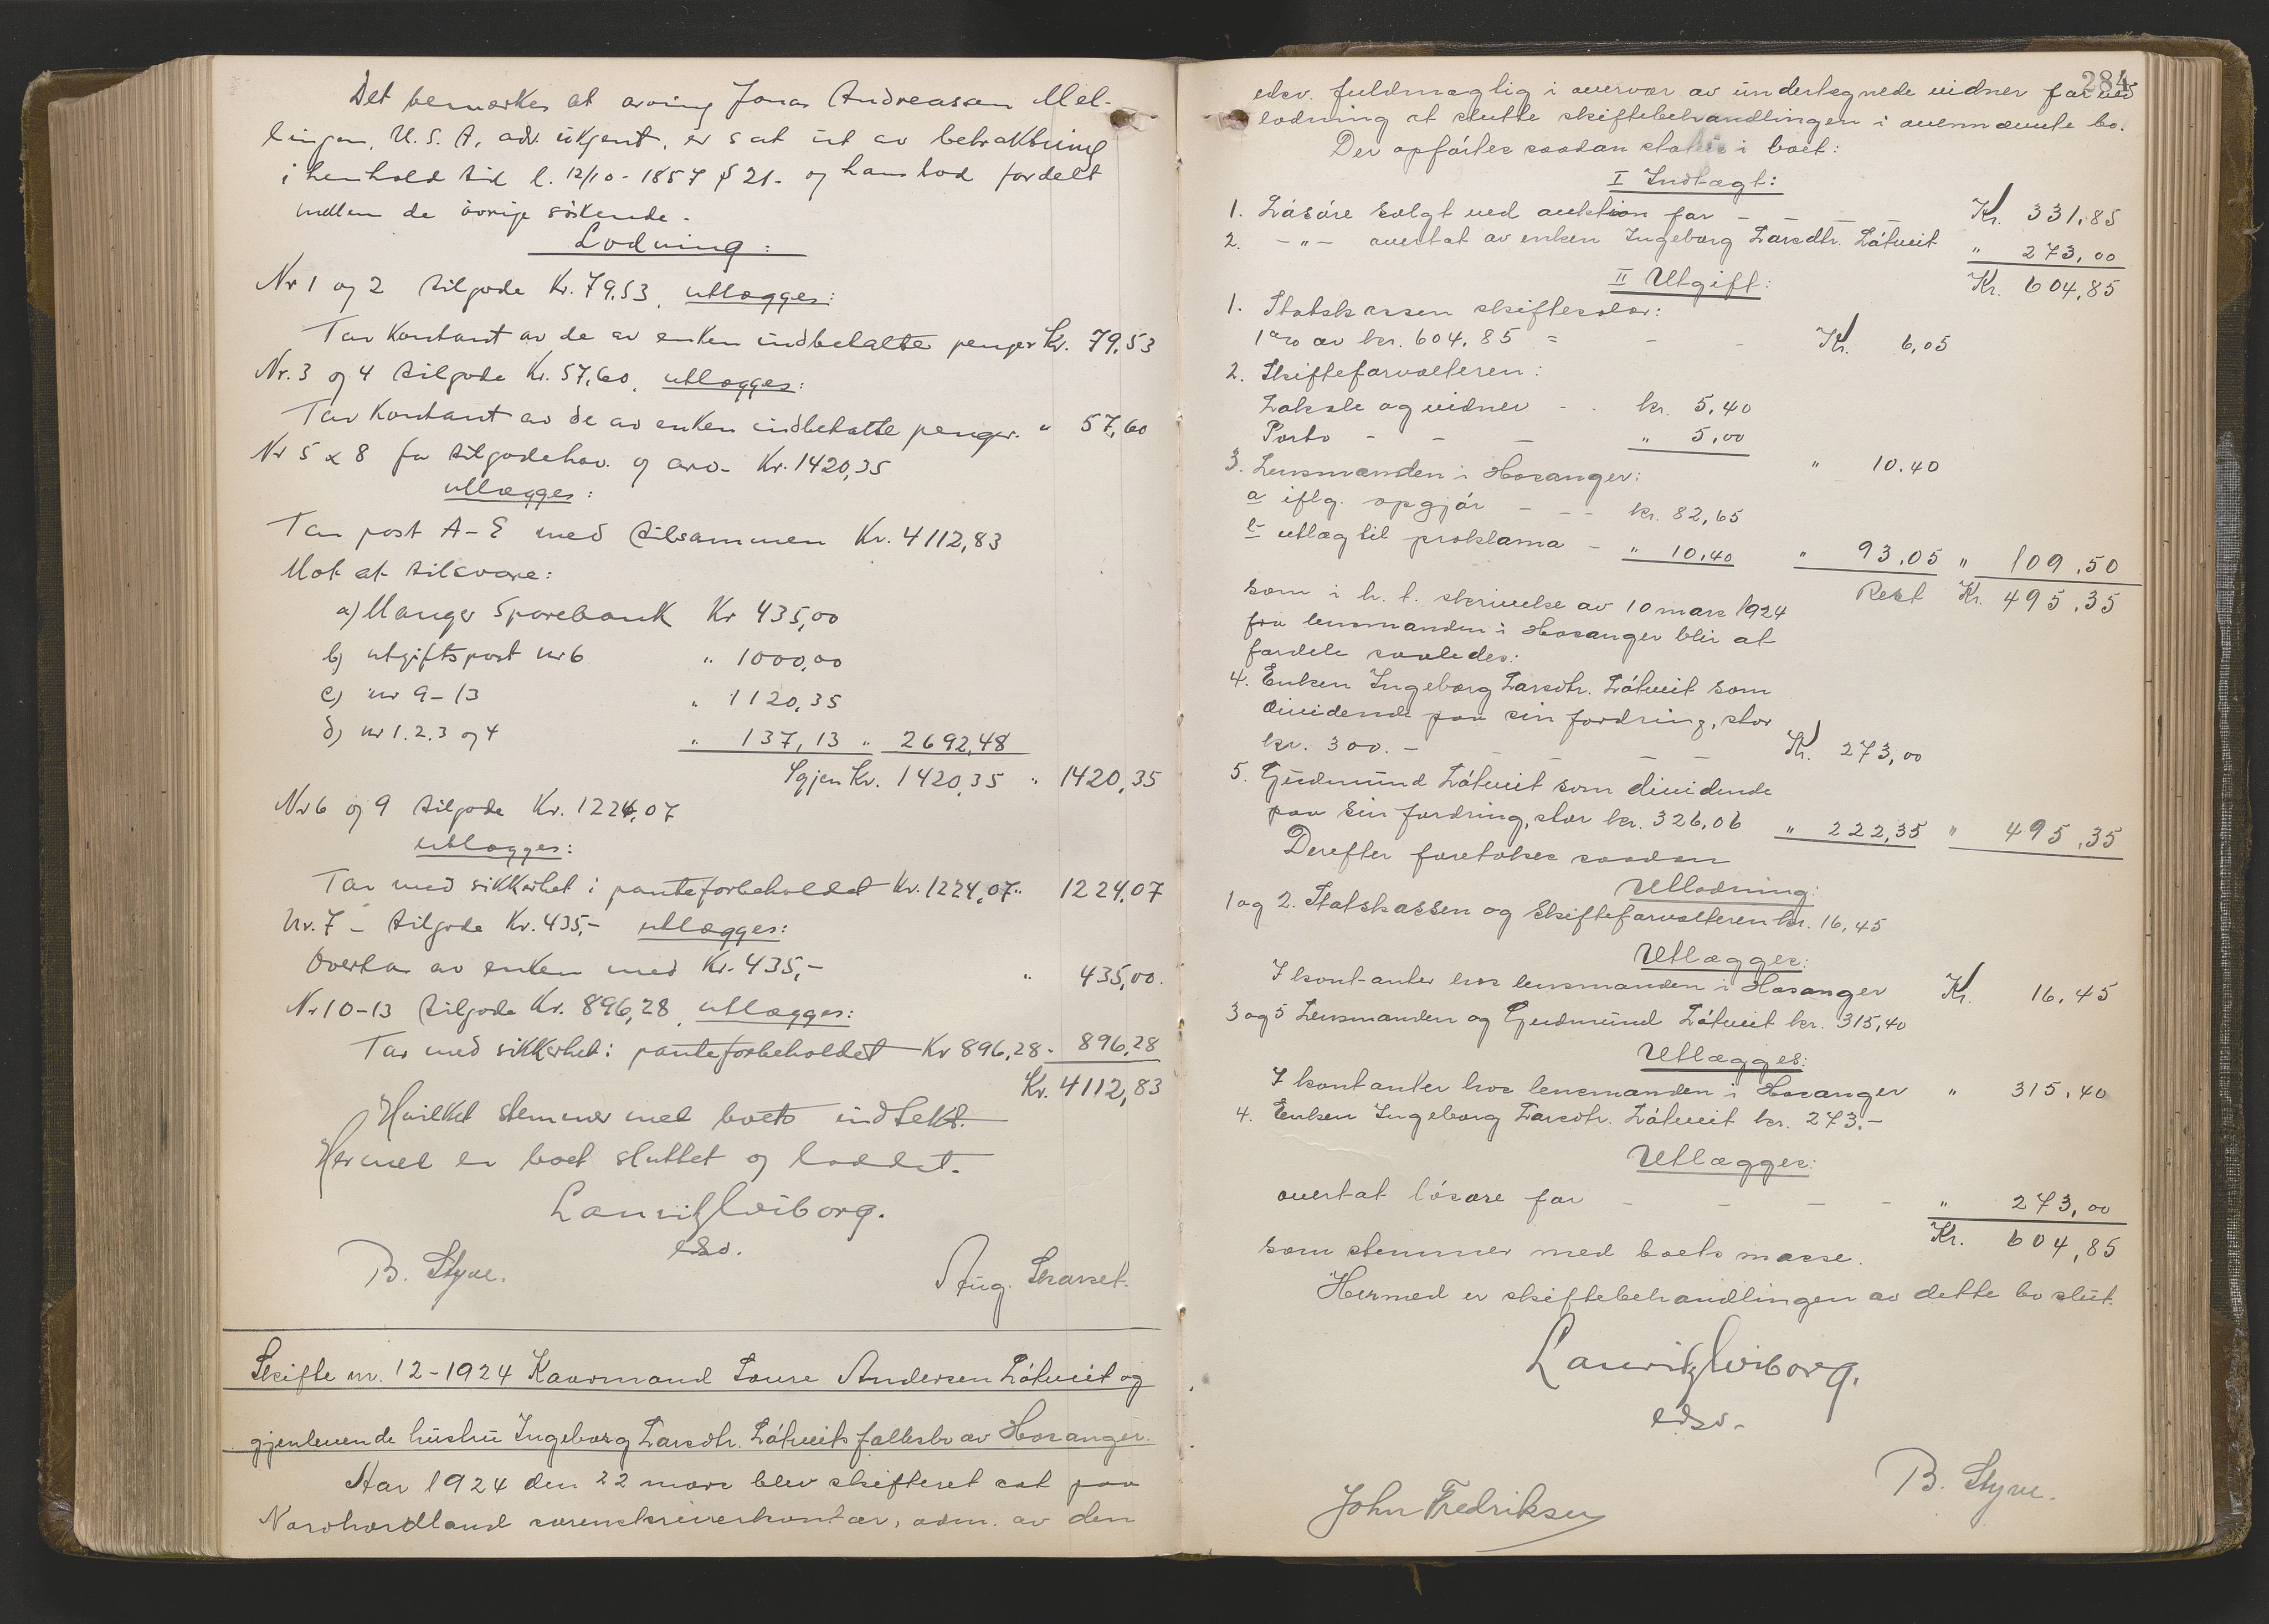 Det bemerkes at arving Jonas Andreassen Mel-
lingen, U. S. A. adr. ukjent, er sat ut av betraktning
i henhold til l. 12/10-1857 § 21. og hans lod fordelt
mellem de övrige söskende.
Lodning:
Nr 1 og 2 tilgode Kr. 79.53, utlægges:
Tar kontant av de av enken indbetalte penger Kr. 79,53
Nr. 3 og 4 tilgode Kr. 57,60, utlægges:
Tar Kontant av de av enken indbetalte penger. " 57,60
Nr 5 & 8 for tilgodehav. og arv. Kr. 1420,35
utlægges:
Tar post A-E med tilsammen Kr. 4112,83
Mot at tilsvare:
a) Manger Sparebank Kr 435,00
b) utgiftspost nr 6 " 1000,00
c) nr 9-13 " 1120,35
d) nr 1. 2. 3 og 4 " 137,13 " 2692,48
Igjen Kr. 1420,35 " 1420,35
Nr 6 og 9 tilgode Kr. 1224,07
utlægges:
Tar med sikkerhet i panteforbeholdet Kr. 1224,07 " 1224,07
Nr. 7 - tilgode Kr. 435,- utlægges:
Overtar av enken med Kr. 435,- " 435,00.
Nr 10-13 tilgode Kr. 896,28, utlægges:
Tar med sikkerhet i panteforbeholdet Kr 896,28 - 896,28
Kr. 4112,83
Hvilket stemmer med boets indtekt.
Hermed er boet sluttet og loddet.
Lauritz Wiborg.
edsv.
B. Styve. Aug. Skarset.
Skifte nr. 12-1924 Kaarmand Toure Andersen Låtveit og
gjenlevende hustru Ingeborg Larsdtr. Låtveits fællesbo av Hosanger.
Aar 1924 den 22 mars blev skifteret sat paa
Nordhordland sorenskriverkontor, adm. av den
284
edsv. fuldmægtig i overvær av undertegnede vidner for ved
lodning at slutte skiftebehandlingen i ovennævnte bo.
Der opförtes saadan status i boet:
I Indtægt:
1. Lösöre solgt ved auktion for - - - - Kr. 331,85
2. -"- overtat av enken Ingeborg Larsdtr. Låtveit " 273,00
Kr. 604,85
II Utgift:
1. Statskassen skiftesalær:
1% av kr. 604,85 = - - Kr. 6,05
2. Skifteforvalteren:
Lokale og vidner - - kr. 5,40
Porto - - - " 5,00
" 10.40
3. Lensmanden i Hosanger:
a iflg. opgjör - - - kr. 82,65
b utlæg til proklama - " 10,40 " 93,05 " 109,50
Rest Kr. 495,35
som i h. t. skrivelse av 10 mars 1924
fra lensmanden i Hosanger blir at
fordele saaledes:
4. Enken Ingeborg Larsdtr. Låtveit som
dividende paa sin fordring, stor
kr. 300.- - - - Kr. 273,00
5. Gudmund Låtveit som dividende
paa sin fordring, stor kr. 326,06 " 222,35 " 495,35
Derefter foretokes saadan
Utlodning:
1 og 2. Statskassen og Skifteforvalteren kr. 16,45
Utlægges:
I kontanter hos lensmanden i Hosanger Kr. 16,45
3 og 5 Lensmanden og Gudmund Låtveit kr. 315,40
Utlægges:
I kontanter hos lensmanden i Hosanger " 315,40
4. Enken Ingeborg Larsdtr. Låtveit kr. 273.-
Utlægges:
overtat lösöre for - - - - " 273,00
Kr. 604,85
som stemmer med boets masse.
Hermed er skiftebehandlingen av dette bo slut.
Lauritz Wiborg.
edsv.
B. Styve.
John Fredriksen